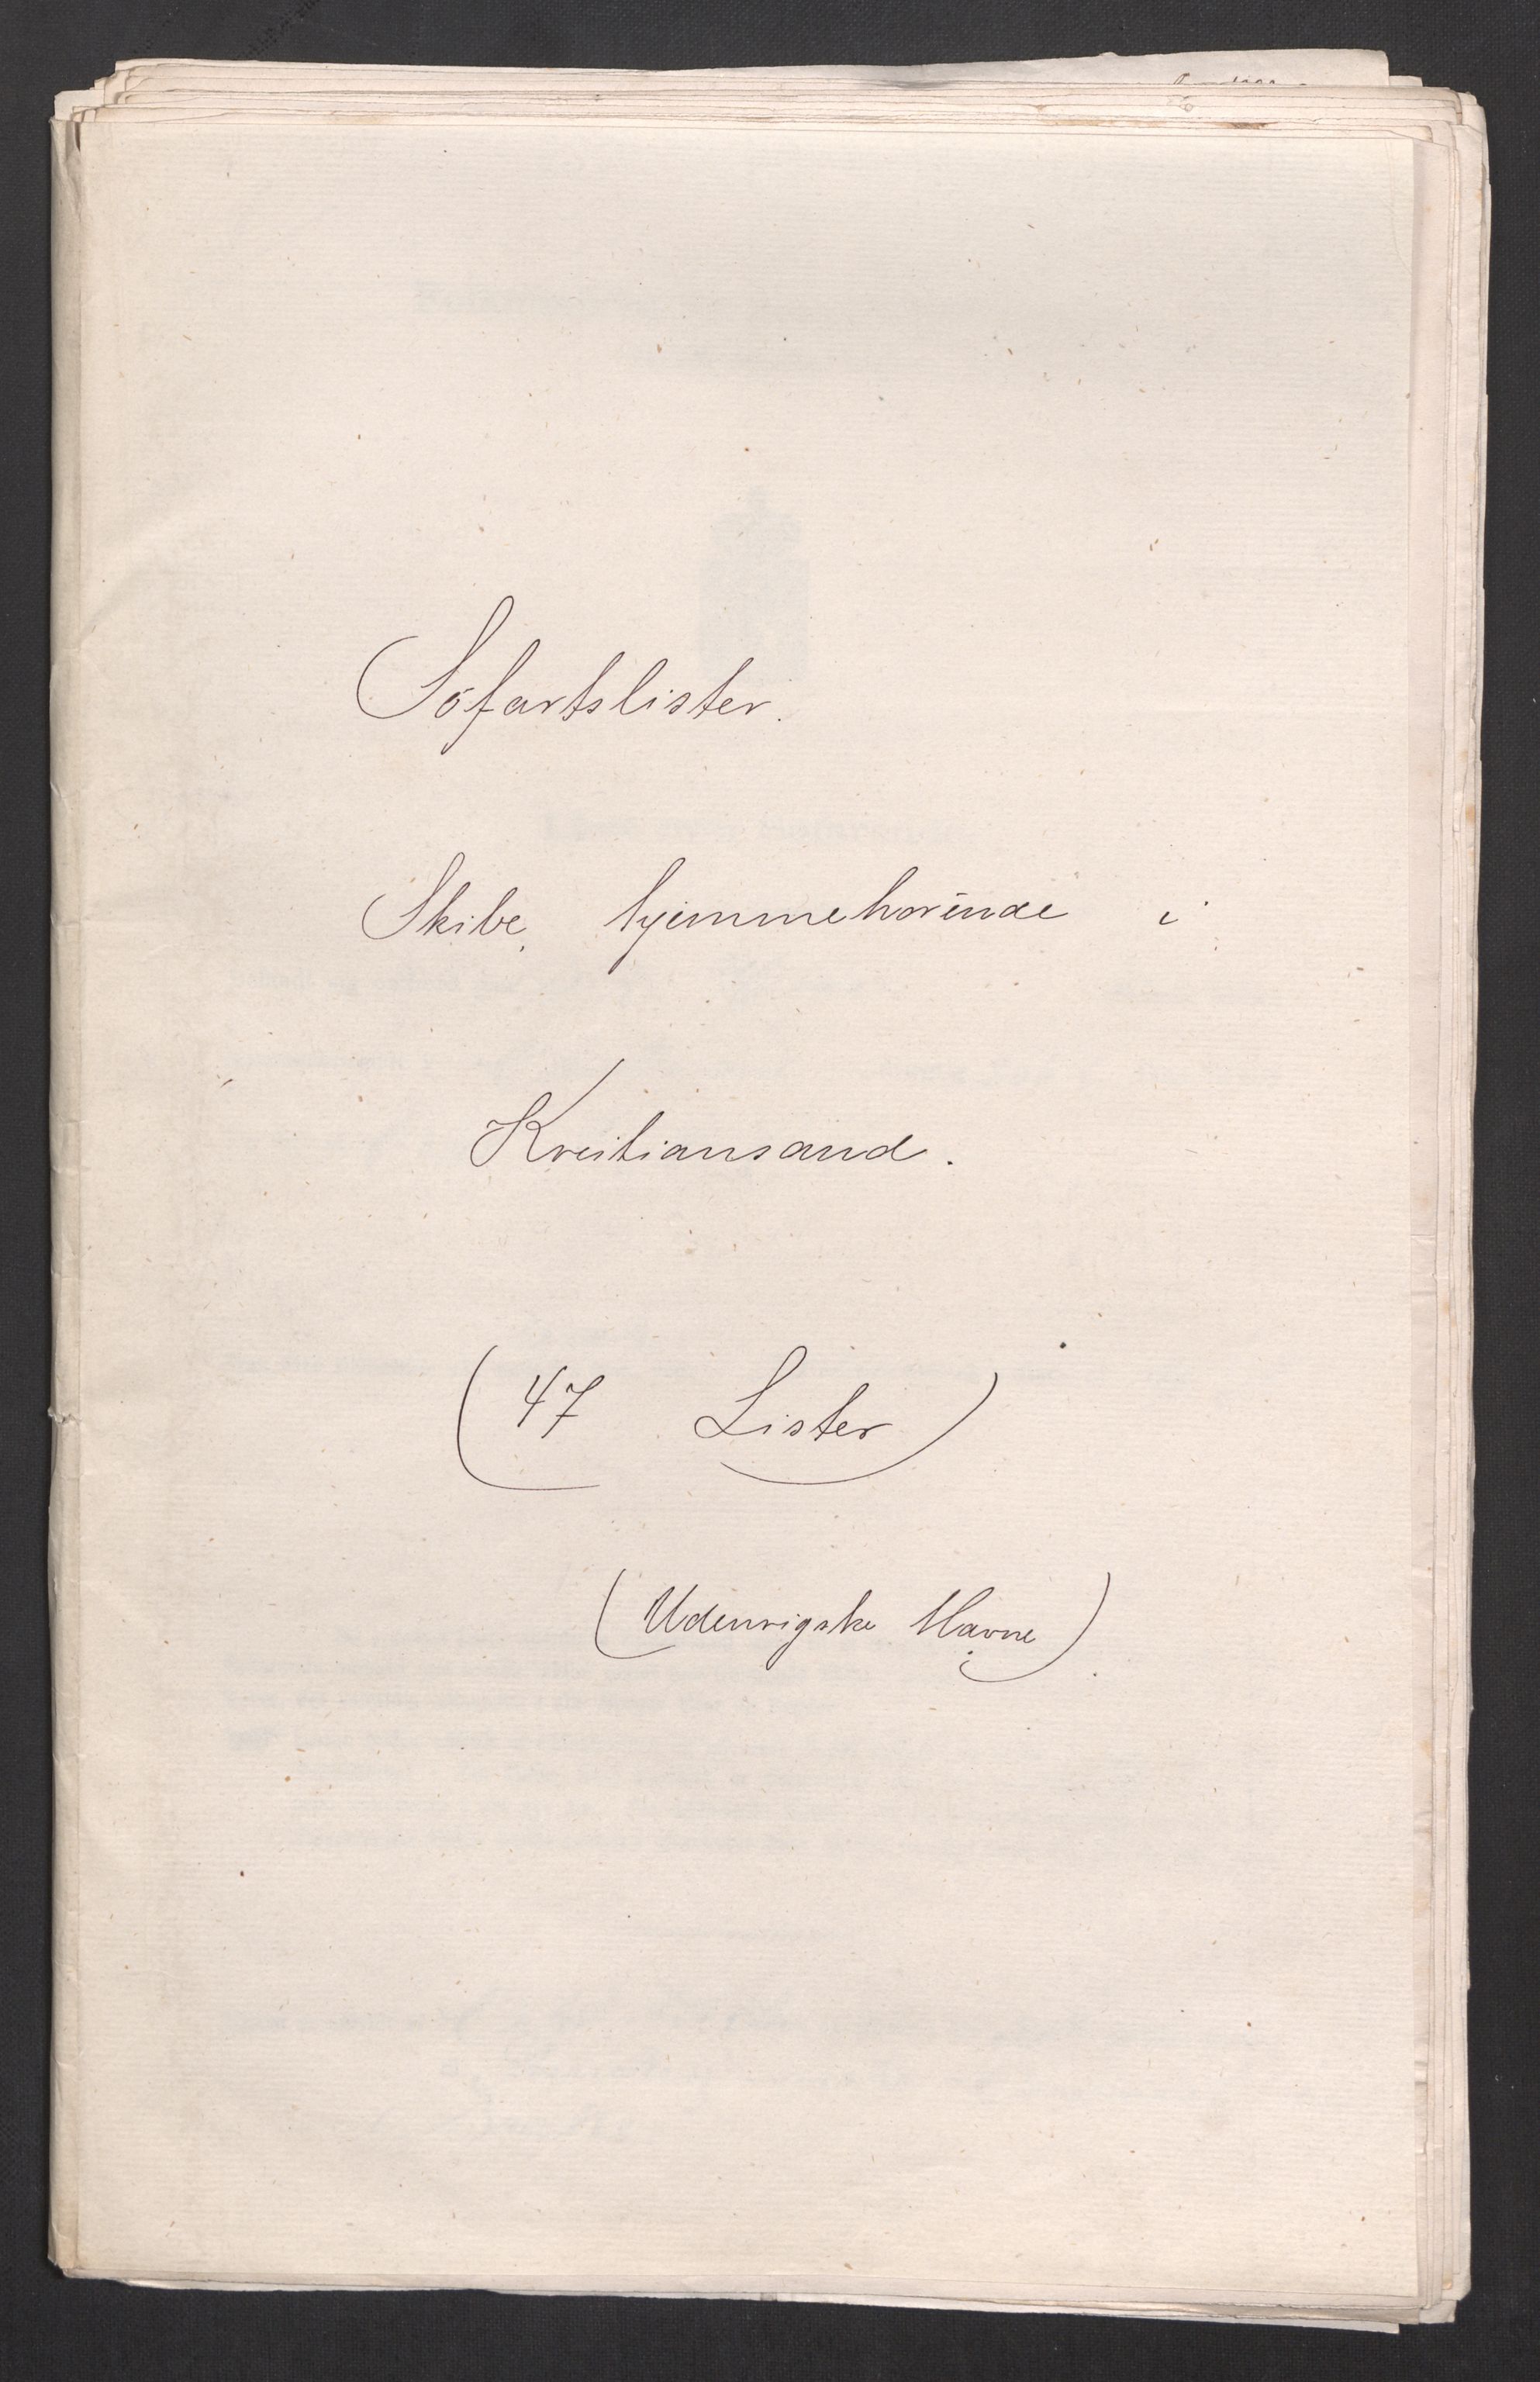 Söfartslister.
Skibe, hjemmehörende i
Kristiansand.
(47 Lister)
(Udenrigske Havne).